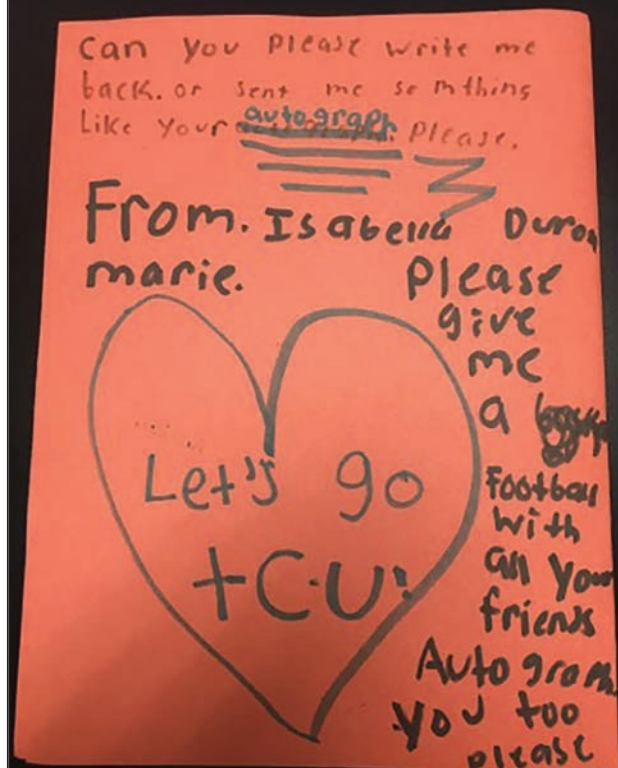 Can you please write me
back. or sent me somthing
Like your autograph. Please.
From. Isabella Duron
marie.
Please
give
me
a
Football
with
all your
friends
Autograph
you too
please
Let's go
+C.U!